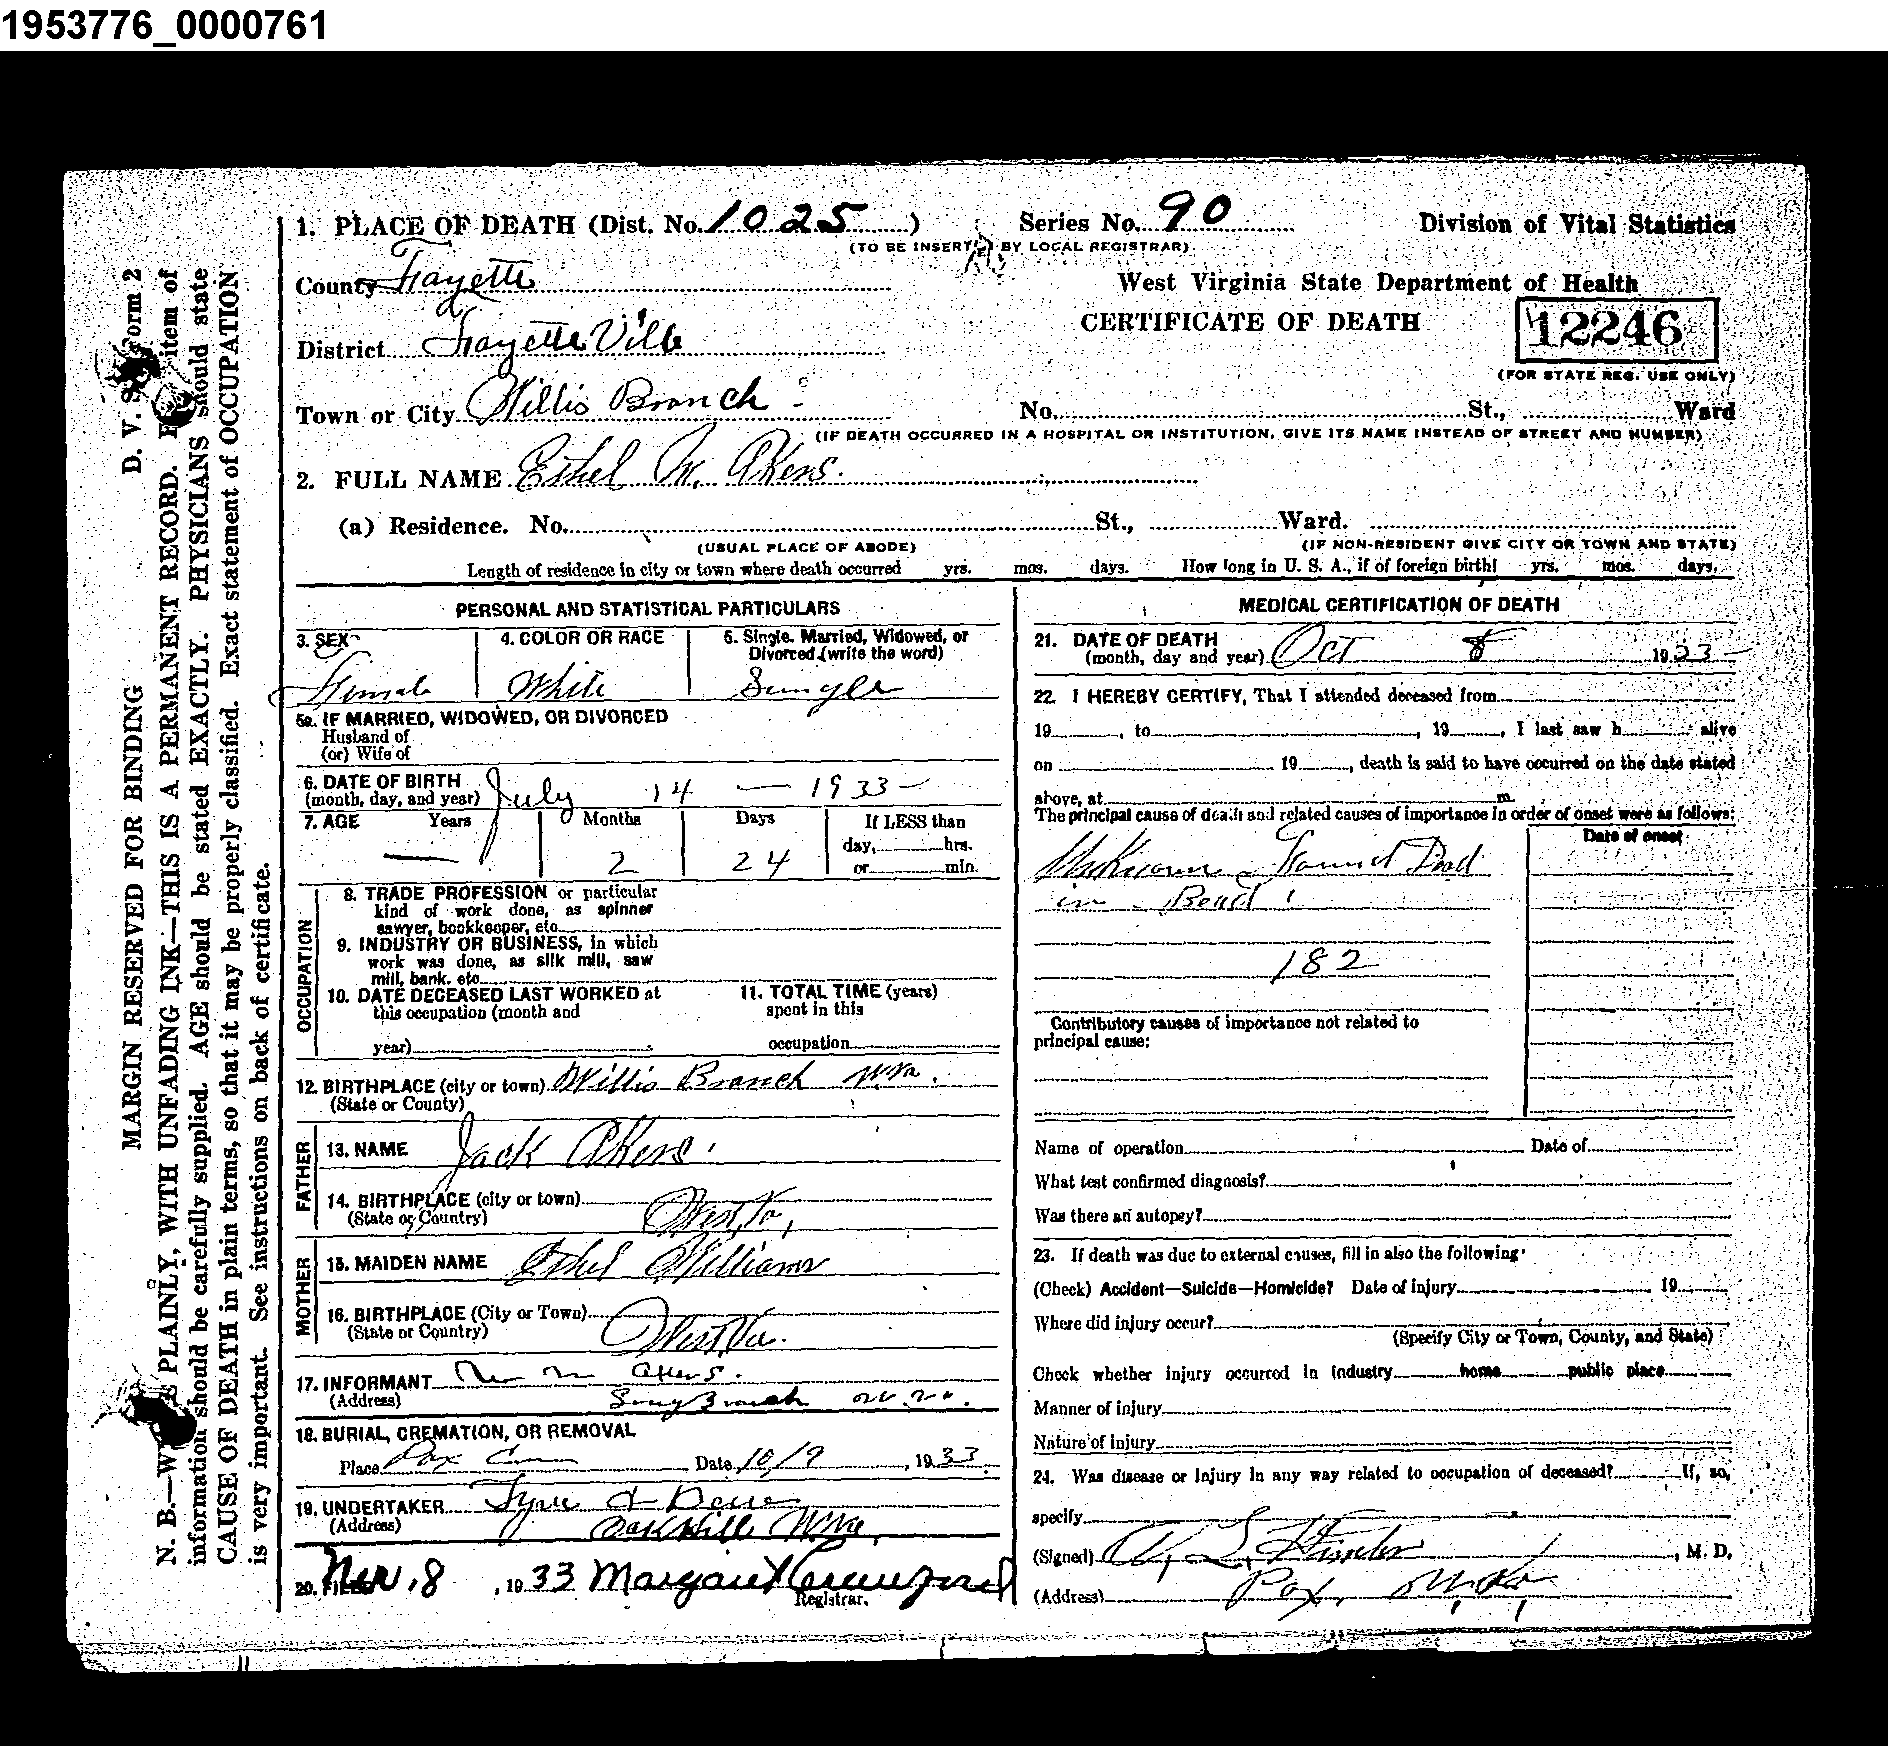 1953776_0000761
1. PLACE OF DEATH (Dist. No. 1025 ) Series No. 90 Division of Vital Statistics
(TO BE INSERTED BY LOCAL REGISTRAR)
County Fayette West Virginia State Department of Health
CERTIFICATE OF DEATH 12246
District Fayetteville
(FOR STATE REG. USE ONLY)
Town or City Willis Branch No. St., Ward
(IF DEATH OCCURRED IN A HOSPITAL OR INSTITUTION, GIVE ITS NAME INSTEAD OF STREET AND NUMBER)
2. FULL NAME Ethel M. Akens.
(a) Residence. No. St., Ward.
(USUAL PLACE OF ABODE) (IF NON-RESIDENT GIVE CITY OR TOWN AND STATE)
Length of residence in city or town where death occurred yrs. mos. days. How long in U. S. A., if of foreign birth! yrs. mos. days.
PERSONAL AND STATISTICAL PARTICULARS
3. SEX 4. COLOR OR RACE 5. Single. Married, Widowed, or
Divorced (write the word)
Female White Single
5a. IF MARRIED, WIDOWED, OR DIVORCED
Husband of
(or) Wife of
6. DATE OF BIRTH
(month, day, and year) July 14 — 1933 —
7. AGE Years Months Days If LESS than
day, hrs.
— 2 24 or min.
OCCUPATION
8. TRADE PROFESSION or particular
kind of work done, as spinner
sawyer, bookkeeper, etc.
9. INDUSTRY OR BUSINESS, in which
work was done, as silk mill, saw
mill, bank. etc.
10. DATE DECEASED LAST WORKED at 11. TOTAL TIME (years)
this occupation (month and spent in this
year) occupation
12. BIRTHPLACE (city or town) Willis Branch W.Va.
(State or County)
FATHER
13. NAME Jack Akens.
14. BIRTHPLACE (city or town)
(State or Country) West Va,
MOTHER
15. MAIDEN NAME Ethel Williams
16. BIRTHPLACE (City or Town)
(State or Country) West Va.
17. INFORMANT Akens.
(Address) Branch W.Va.
18. BURIAL, CREMATION, OR REMOVAL
Place Pax Cem Date 10/9, 1933
19. UNDERTAKER Tyree &
(Address) Oak Hill W Va,
20. FILED Nov. 8, 1933 Margaret Crawford
Registrar.
MEDICAL CERTIFICATION OF DEATH
21. DATE OF DEATH
(month, day and year) Oct 8 1933 —
22. I HEREBY CERTIFY, That I attended deceased from
19 , to , 19 , I last saw h alive
on 19 , death is said to have occurred on the date stated
above, at m.
The principal cause of death and related causes of importance in order of onset were as follows:
Date of onset
Unknown - Found Dead
in - Bead!
182
Contributory causes of importance not related to
principal cause:
Name of operation Date of
What test confirmed diagnosis?
Was there an autopsy?
23. If death was due to external causes, fill in also the following:
(Check) Accident—Suicide—Homicide? Date of injury 19
Where did injury occur?
(Specify City or Town, County, and State)
Check whether injury occurred in industry home public place
Manner of injury
Nature of injury
24. Was disease or injury in any way related to occupation of deceased? If, so,
specify
(Signed) L. , M. D.
(Address) Pax, W. Va.
MARGIN RESERVED FOR BINDING D. V. S. Form 2
N. B.—WRITE PLAINLY, WITH UNFADING INK—THIS IS A PERMANENT RECORD. Every item of
information should be carefully supplied. AGE should be stated EXACTLY. PHYSICIANS should state
CAUSE OF DEATH in plain terms, so that it may be properly classified. Exact statement of OCCUPATION
is very important. See instructions on back of certificate.